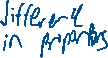 different
in properties